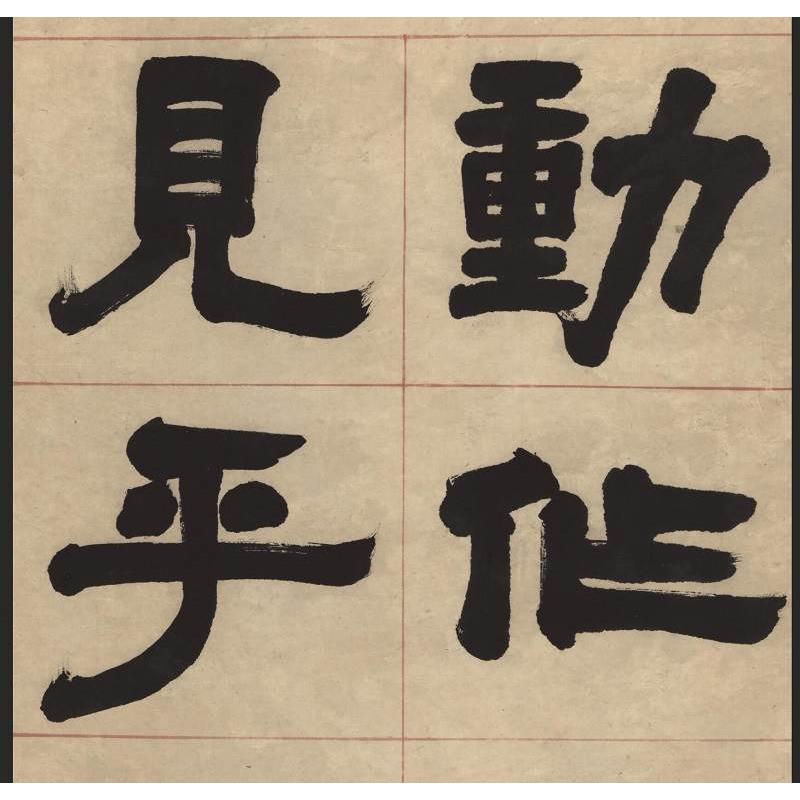 動作
見乎